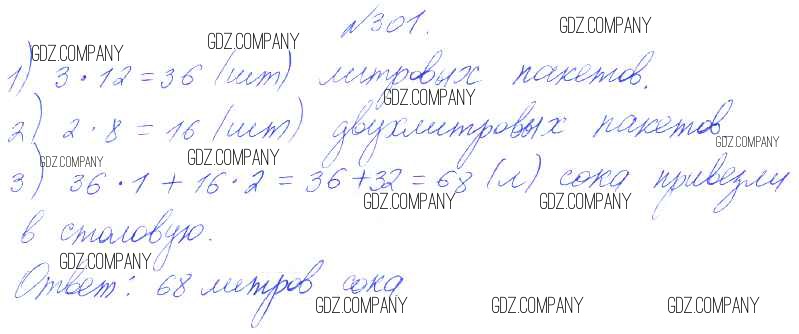 №301.
GDZ.COMPANY
GDZ.COMPANY GDZ.COMPANY
1) 3 · 12 = 36 (шт) литровых пакетов.
GDZ.COMPANY
2) 2 · 8 = 16 (шт) двухлитровых пакетов
GDZ.COMPANY GDZ.COMPANY GDZ.COMPANY
3) 36 · 1 + 16 · 2 = 36 + 32 = 68 (л) сока привезли
GDZ.COMPANY GDZ.COMPANY
в столовую.
GDZ.COMPANY
Ответ: 68 литров сока
GDZ.COMPANY GDZ.COMPANY GDZ.COMPANY